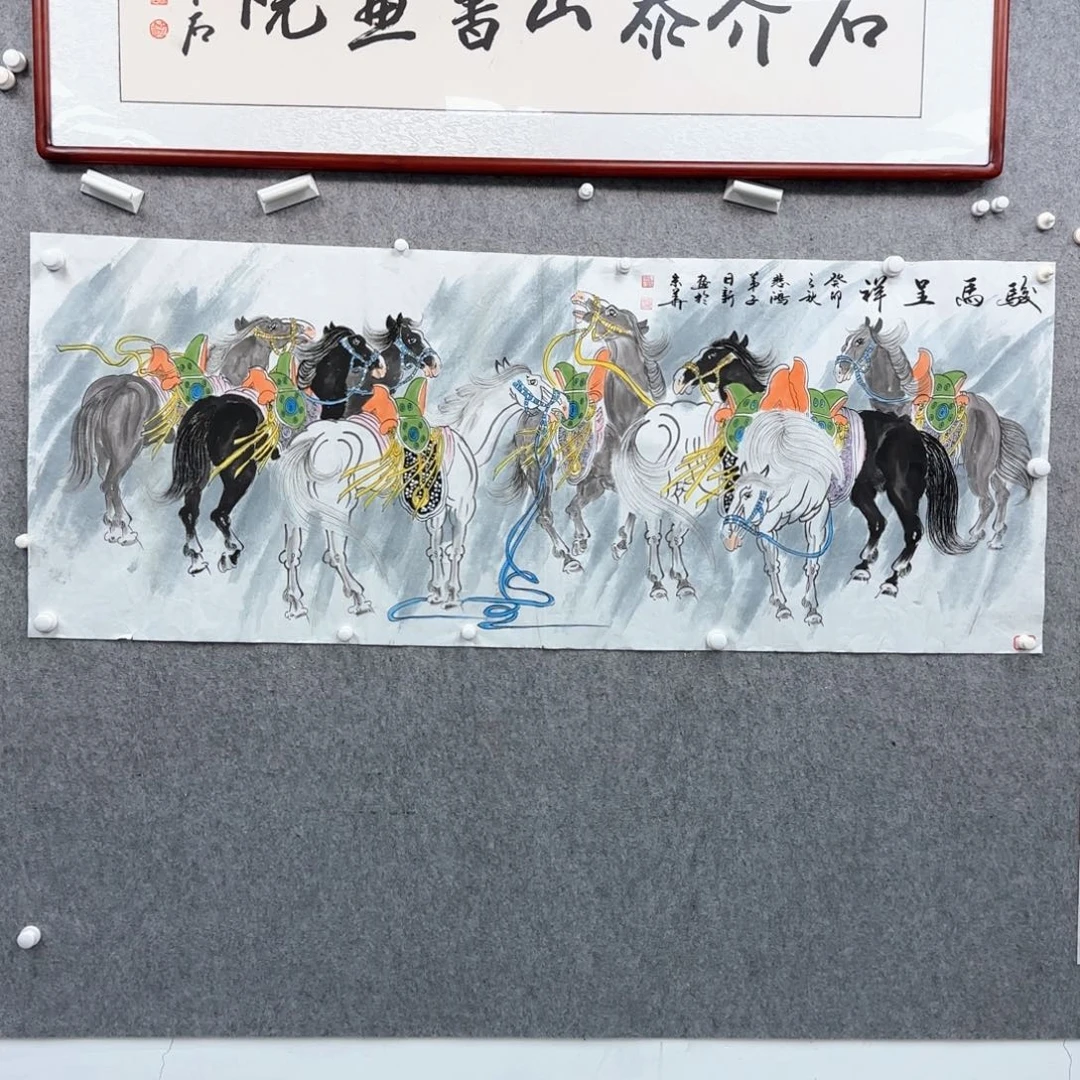 石介泰山書畫院
駿馬呈祥
癸卯
之秋
悲鴻
弟子
日新
畫於
京華